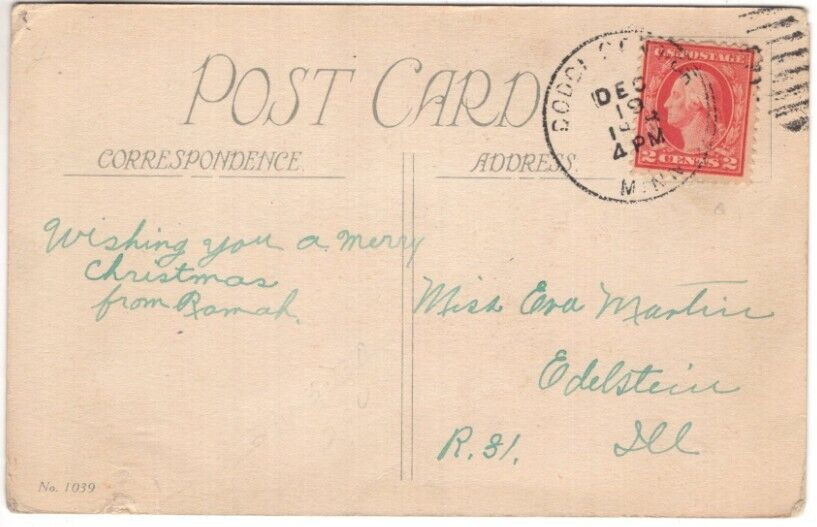 POST CARD
CORRESPONDENCE.
ADDRESS.
U.S. POSTAGE
2 CENTS 2
DEC
19
4 PM
MINN
Wishing you a merry
Christmas
from Ramah.
Miss Eva Martin
Edelstein
R. 31. Ill
No. 1039